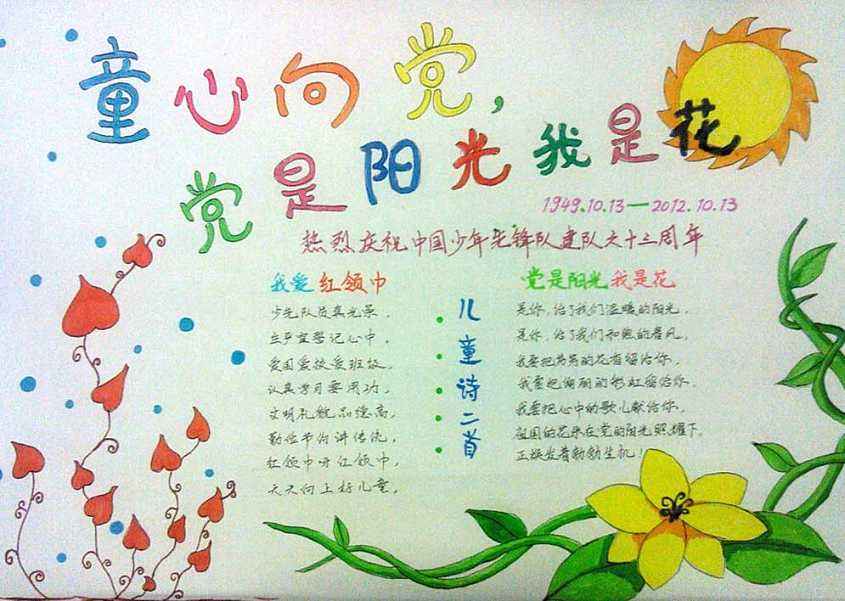 童心向党，
党是阳光我是花
1949.10.13—2012.10.13
热烈庆祝中国少年先锋队建队六十三周年
我爱红领巾
少先队员真光荣，
立平誓言记心中，
爱国爱校爱班级，
认真学习要用功，
文明礼貌品德高，
勤俭节约讲传统，
红领巾呀红领巾，
天天向上好儿童。
儿童诗二首
党是阳光我是花
是你，给了我们温暖的阳光，
是你，给了我们和煦的春风，
我要把芬芳的花香留给你，
我要把绚丽的彩虹留给你，
我要把心中的歌儿献给你，
祖国的花朵在党的阳光照耀下，
正焕发着勃勃生机！